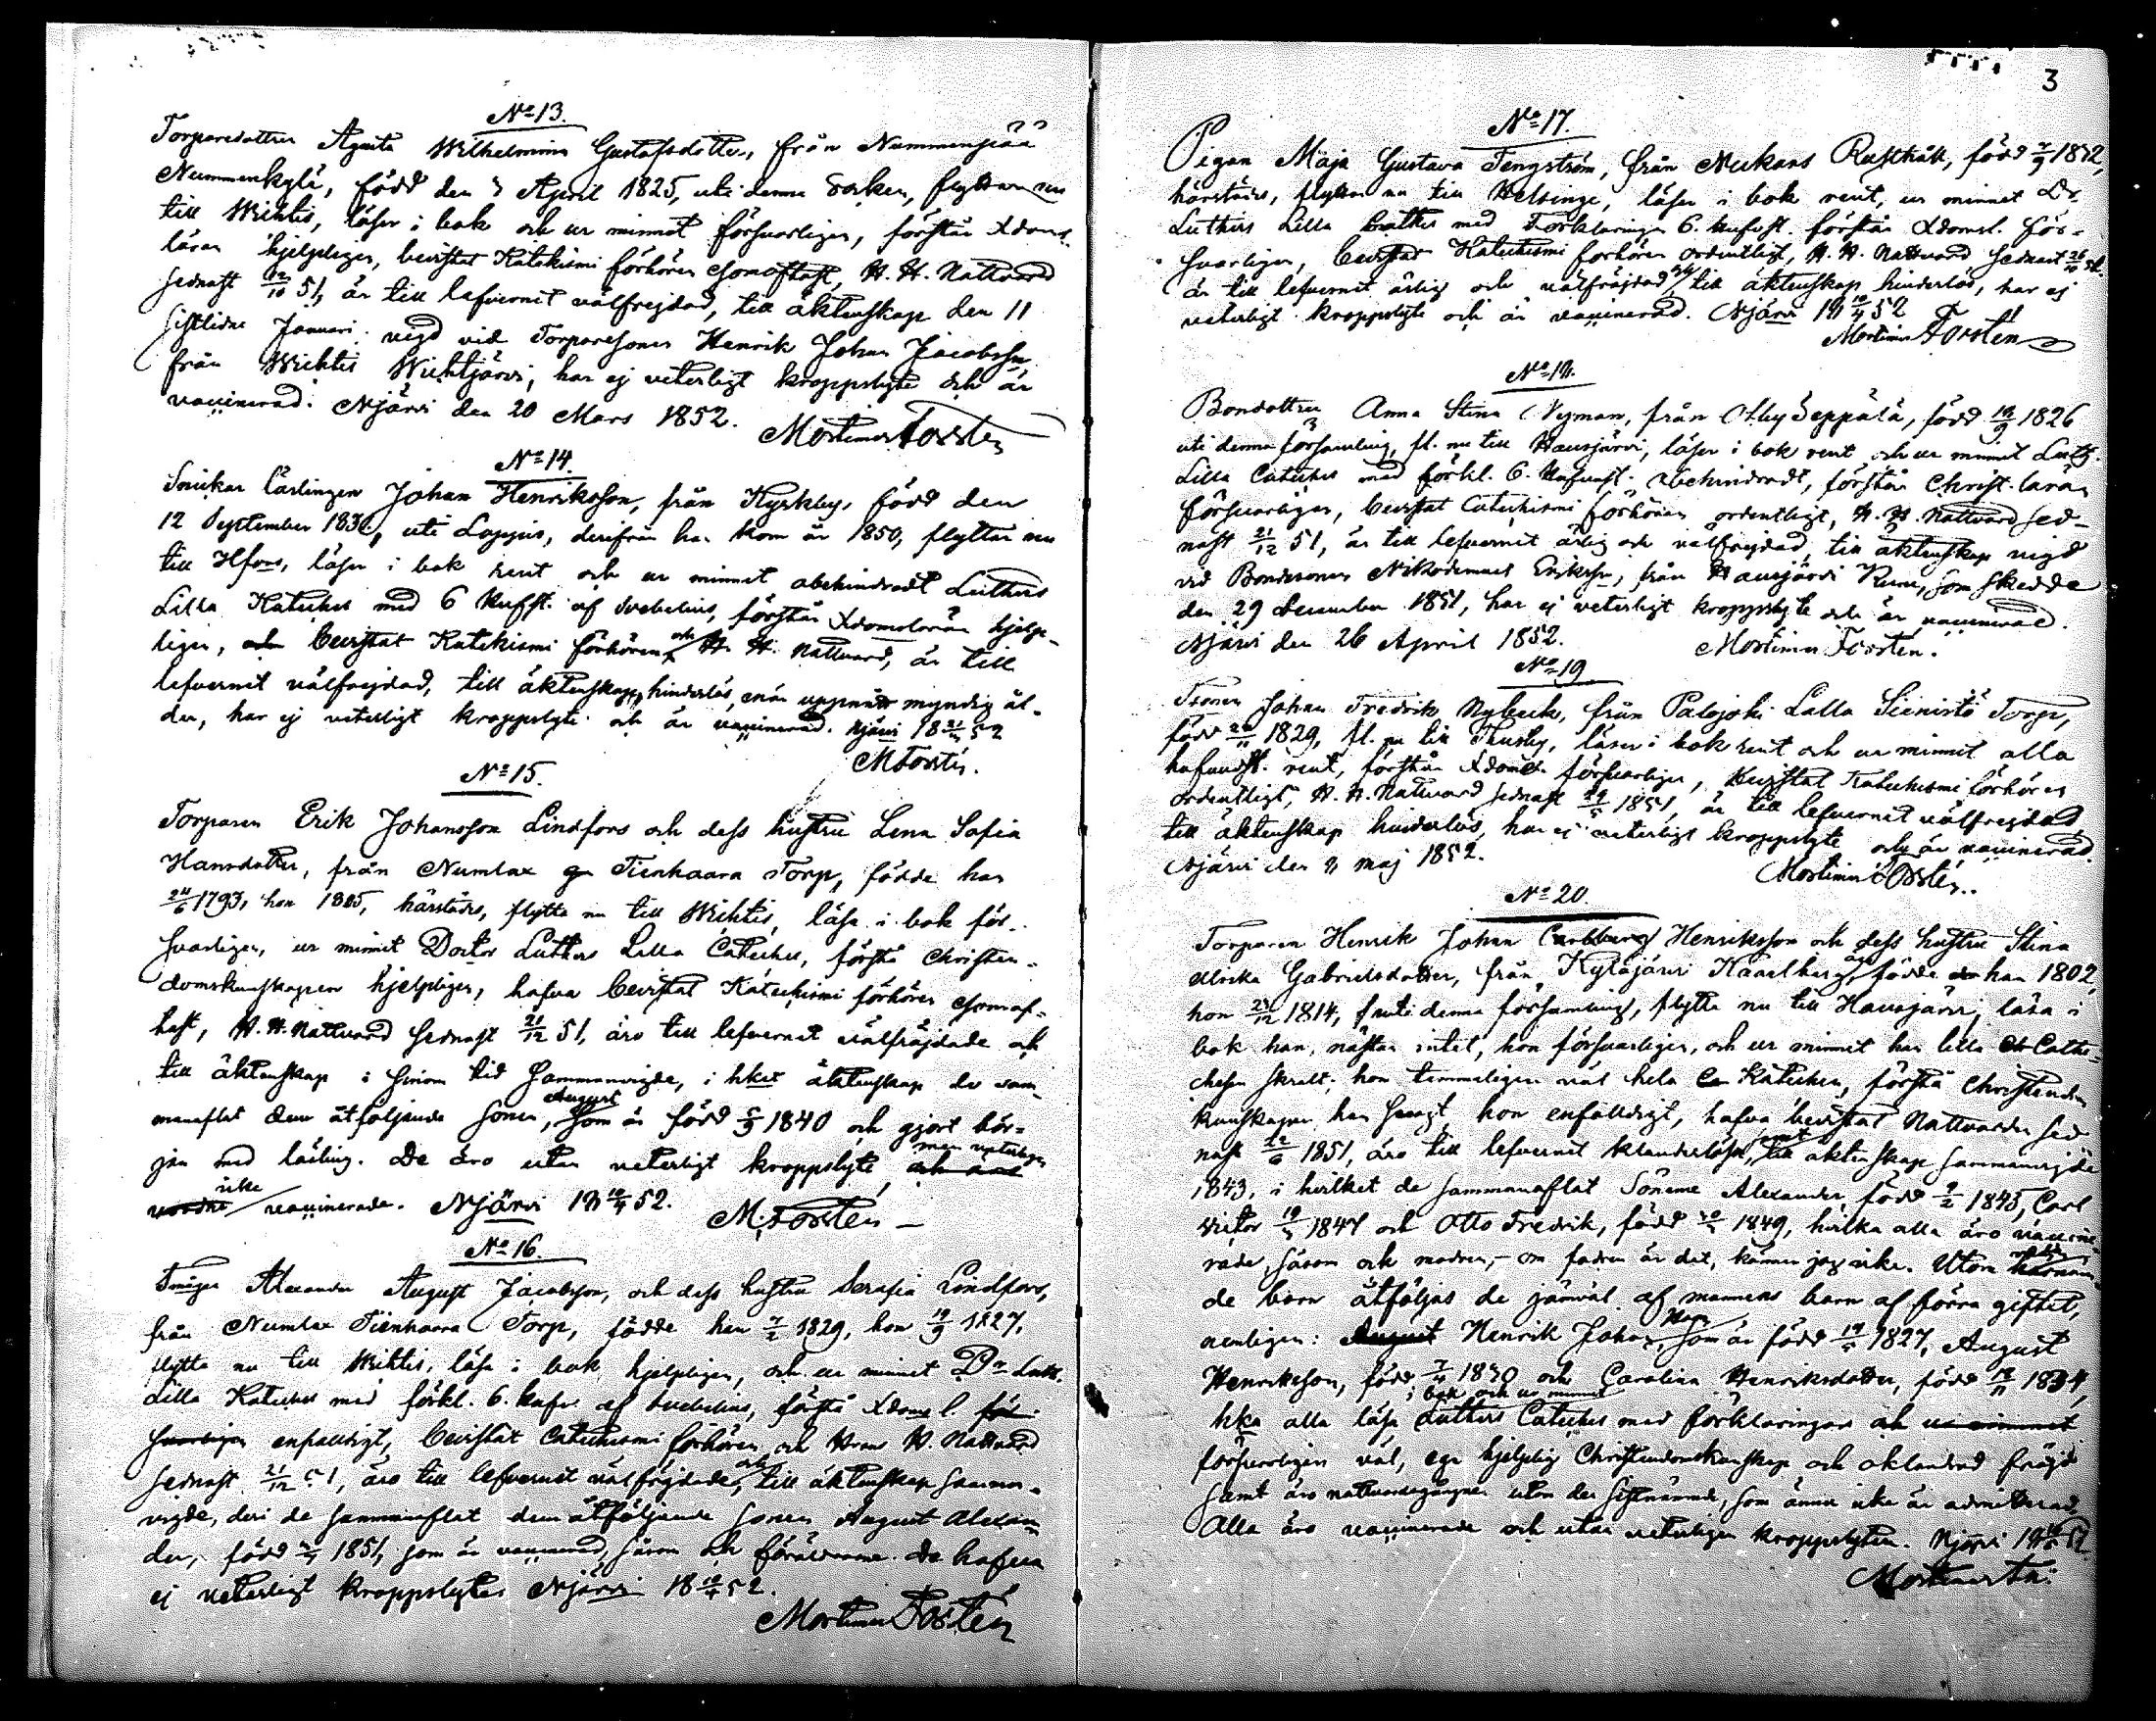 No 13.
Torparedottren Agata Wilhelmina Gustafsdotter, från Nummenpää
Nummenkylä, född den 3 April 1825, uti denna Socken, flyttar nu
till Wichtis, läser i bok och ur minnet försvarligen, förstår Xdoms
läran hjelpligen, bevistat Katekismi förhören oftast, H. H. Nattvard
sednast 12/10 51, är till lefvernet välfrejdad, till äktenskap den 11
sistlidne Januari vigd vid Torparesonen Henrik Johan Jacobsson
från Wichtis Wichtjärvi, har ej veterligt kroppslyte och är
vaccinerad. Njärvi den 20 Mars 1852.
Mortimer Forstén
No 14.
Snickar lärlingen Johan Henriksson, från Kyrkby, född den
12 September, uti Loppis, derifrån han kom år 1850, flyttar nu
till Hfors, läser i bok rent och ur minnet obehindradt Luthers
Lilla Kateches med 6 Hufst. af Svebelius, förstår Xdomsläran hjelp-
ligen, bevistat Katekismi förhören och H. H. Nattvard, är till
lefvernet välfrejdad, till äktenskap hinderlös, när uppnått myndig ål-
der, har ej veterligt kroppslyte och är vaccinerad. Njärvi 18 52
M Forstén.
No 15.
Torparen Erik Johansson Lindfors och dess hustru Lena Sofia
Hansdotter, från Numlax Tienhaara Torp, födde han
24/6 1793, hon 1805, härstädes, flytta nu till Wichtis, läsa i bok för-
svarligen, ur minnet Doctor Luthers Lilla Cateches, förstå Christen-
domskunskapen hjelpligen, hafva bevistat Katechismi förhören
H. H. Nattvard sednast 21/12 51, äro till lefvernet välfräjdade och
till äktenskap i sinom tid sammanvigde, i hket äktenskap de sam-
manaflat den åtföljande sonen, August som är född 5/9 1840 och gjort bör-
jan med läsning. De äro utan veterligt kroppslyte, men veterligen
icke vaccinerade. Njärvi 18 19/4 52.
M. Forstén
No 16.
Alexander August Jacobsson, och dess hustru Serafia Lindfors,
från Numlax Tienhaara Torp, födde han 7/2 1829, hon 19/9 1827,
flytta nu till Wichtis, läsa i bok hjelpligen, och ur minnet Dr Luth.
Lilla Kateches med förkl. 6. hufv. af Svebelius, förstå Xdoms l.
enfaldigt, bevistat Catechismi förhören och Herrans H. Nattvard
sednast 21/12 51, äro till lefvernet välfrejdade, och till äktenskap samman-
vigde, deri de sammanaflat den åtföljande sonen August Alexan-
der, född 1851, som är vaccinerad, såsom ock föräldrarne. De hafva
ej veterligt kroppslyte. Njärvi 18 19/4 52.
Mortimer Forstén
3
No 17.
Pigan Maja Gustava Tengström, från Nukars Rusthåll, född 1832,
härstädes, flyttar nu till Helsinge, läser i bok rent, ur minnet Dr
Luthers Lilla Cathes med Förklaringen 6. hufvst. förstår Xdomsl. för-
svarligen, bevistar Katechismi förhören ordentligt, H. H. Nattvard sednast 26/10 51.
är till lefvernet ärlig och välfräjdad och till äktenskap hinderlös, har ej
veterligt kroppslyte och är vaccinerad. Njärvi 18 19/4 52
Mortimer Forstén
No 18.
Bondottren Anna Stina Nyman, från Otby Seppälä, född 19/9 1826
uti denna församling, fl. nu till Hausjärvi, läser i bok rent och ur minnet Luth.
Lilla Cateches med förkl. 6. Hufvust. obehindradt, förstår Christ. läran
försvarligen, bevistat Catechismi förhören ordentligt, H. H. Nattvard sed-
nast 21/12 51, är till lefvernet ärlig och välfrejdad, till äktenskap vigd
vid Bondesonen Nikodemus Eriksson, från Hausjärvi, som skedde
den 29 December 1851, har ej veterligt kroppslyte och är vaccinerad.
Njärvi den 26 April 1852.
Mortimer Forstén.
No 19.
Johan Fredrik Nybeck, från Palojoki Lalla Sienistö Torp,
född 1829, fl. nu till Thusby, läser i bok rent och ur minnet alla
hufvudst. rent, förstår Xdomen försvarligen, bevistat Katechismi förhören
ordentligt, H. H. Nattvard sednast 1851, är till lefvernet välfrejdad,
till äktenskap hinderlös, har ej veterligt kroppslyte och är vaccinerad.
Njärvi den maj 1852.
Mortimer Forstén.
No 20.
Torparen Henrik Johan Carlberg Henriksson och dess hustru Stina
Ulrika Gabrielsdotter, från Kyläjärvi Kaarlberg, födde han 1802,
hon 23/12 1814, uti denna församling, flytta nu till Hausjärvi, läsa i
bok han, nästan intet, hon försvarligen, och ur minnet han lilla Cathe-
chesen skralt, hon temmeligen väl hela Katechesen, förstå Christendoms
kunskapen han svagt, hon enfalldigt, hafva bevistat Nattvarden sed-
nast 1851, äro till lefvernet klanderlösa, samt till äktenskap sammanvigde
1843, i hvilket de sammanaflat Sönerne Alexander, född 7/2 1845, Carl
Victor 1847 och Otto Fredrik, född 1849, hvilka alla äro vaccine-
rade, såsom ock modren, - om fadren är det, känner jag icke. Utom
de barn åtföljas de jämväl af mannens barn af förra giftet,
nemligen: August Henrik Johan, som är född 1827, August
Henriksson, född 1830 och Carolina Henriksdotter, född 1834,
i bok och ur minnet
hka alla läsa Luthers Cateches med förklaringar och ur minnet
försvarligen väl, ega hjelplig Christendomskunskap och oklandrad fräjd
samt äro nattvardsgångne utom den sistnämnde, som ännu icke är admitterad.
Alla äro vaccinerade och utan veterligen kroppslyten. Njärvi 52